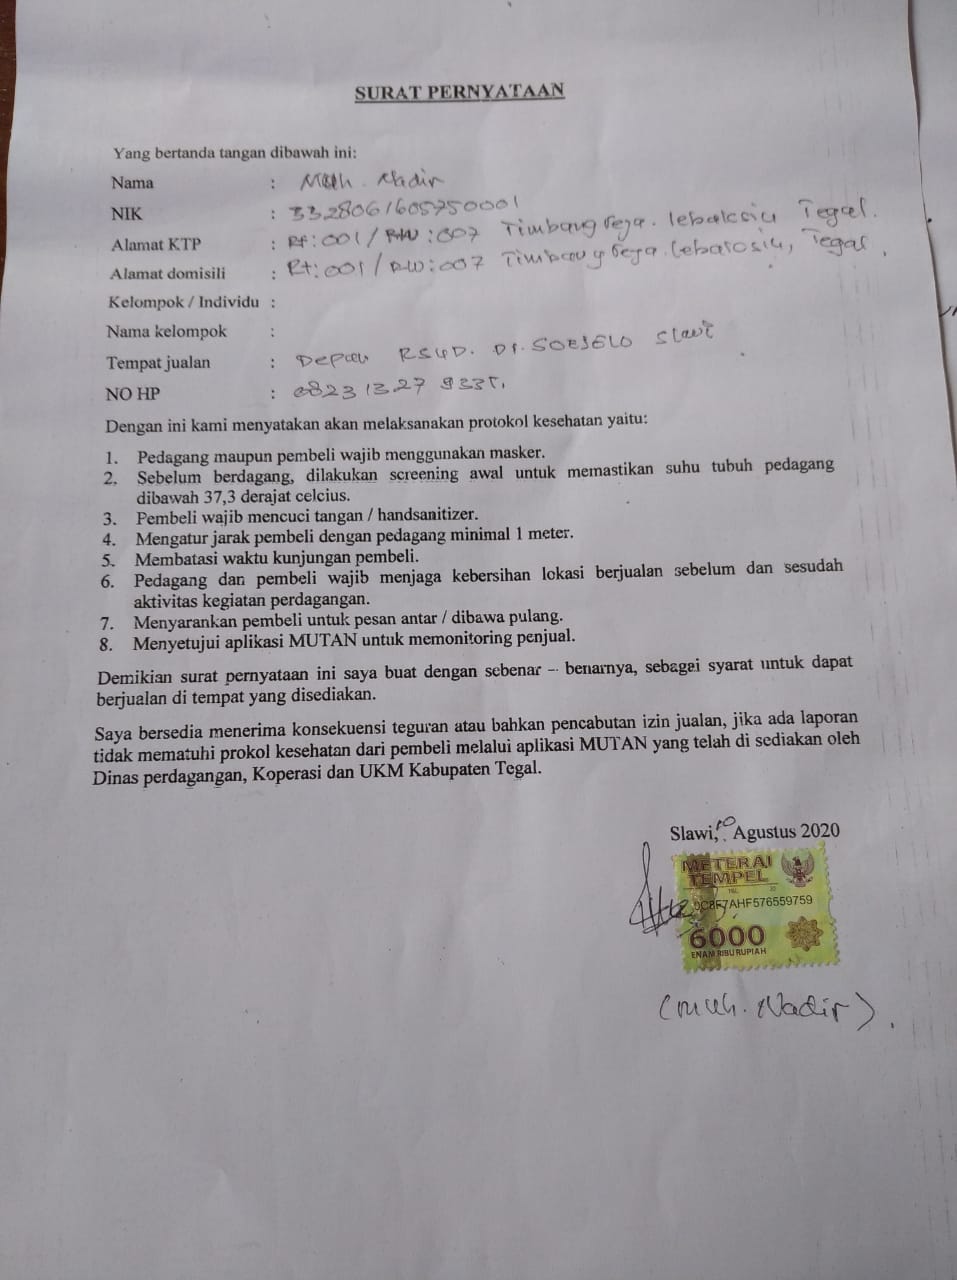 SURAT PERNYATAAN
Yang bertanda tangan dibawah ini:
Nama : Muh. Nadir
NIK : 3328061605750001
Alamat KTP : Rt:001/RW:007 Timbangreja. lebaksiu Tegal.
Alamat domisili : Rt:001/RW:007 Timbangreja. Lebaksiu, Tegal,
Kelompok / Individu :
Nama kelompok :
Tempat jualan : Depan RSUD. Dr. SOESELO Slawi
NO HP : 0823 1327
Dengan ini kami menyatakan akan melaksanakan protokol kesehatan yaitu:
1. Pedagang maupun pembeli wajib menggunakan masker.
2. Sebelum berdagang, dilakukan screening awal untuk memastikan suhu tubuh pedagang
dibawah 37,3 derajat celcius.
3. Pembeli wajib mencuci tangan / handsanitizer.
4. Mengatur jarak pembeli dengan pedagang minimal 1 meter.
5. Membatasi waktu kunjungan pembeli.
6. Pedagang dan pembeli wajib menjaga kebersihan lokasi berjualan sebelum dan sesudah
aktivitas kegiatan perdagangan.
7. Menyarankan pembeli untuk pesan antar / dibawa pulang.
8. Menyetujui aplikasi MUTAN untuk memonitoring penjual.
Demikian surat pernyataan ini saya buat dengan sebenar – benarnya, sebagai syarat untuk dapat
berjualan di tempat yang disediakan.
Saya bersedia menerima konsekuensi teguran atau bahkan pencabutan izin jualan, jika ada laporan
tidak mematuhi prokol kesehatan dari pembeli melalui aplikasi MUTAN yang telah di sediakan oleh
Dinas perdagangan, Koperasi dan UKM Kabupaten Tegal.
Slawi, 10 Agustus 2020
METERAI
TEMPEL
TGL 20
6000
ENAM RIBU RUPIAH
(Muh. Nadir).